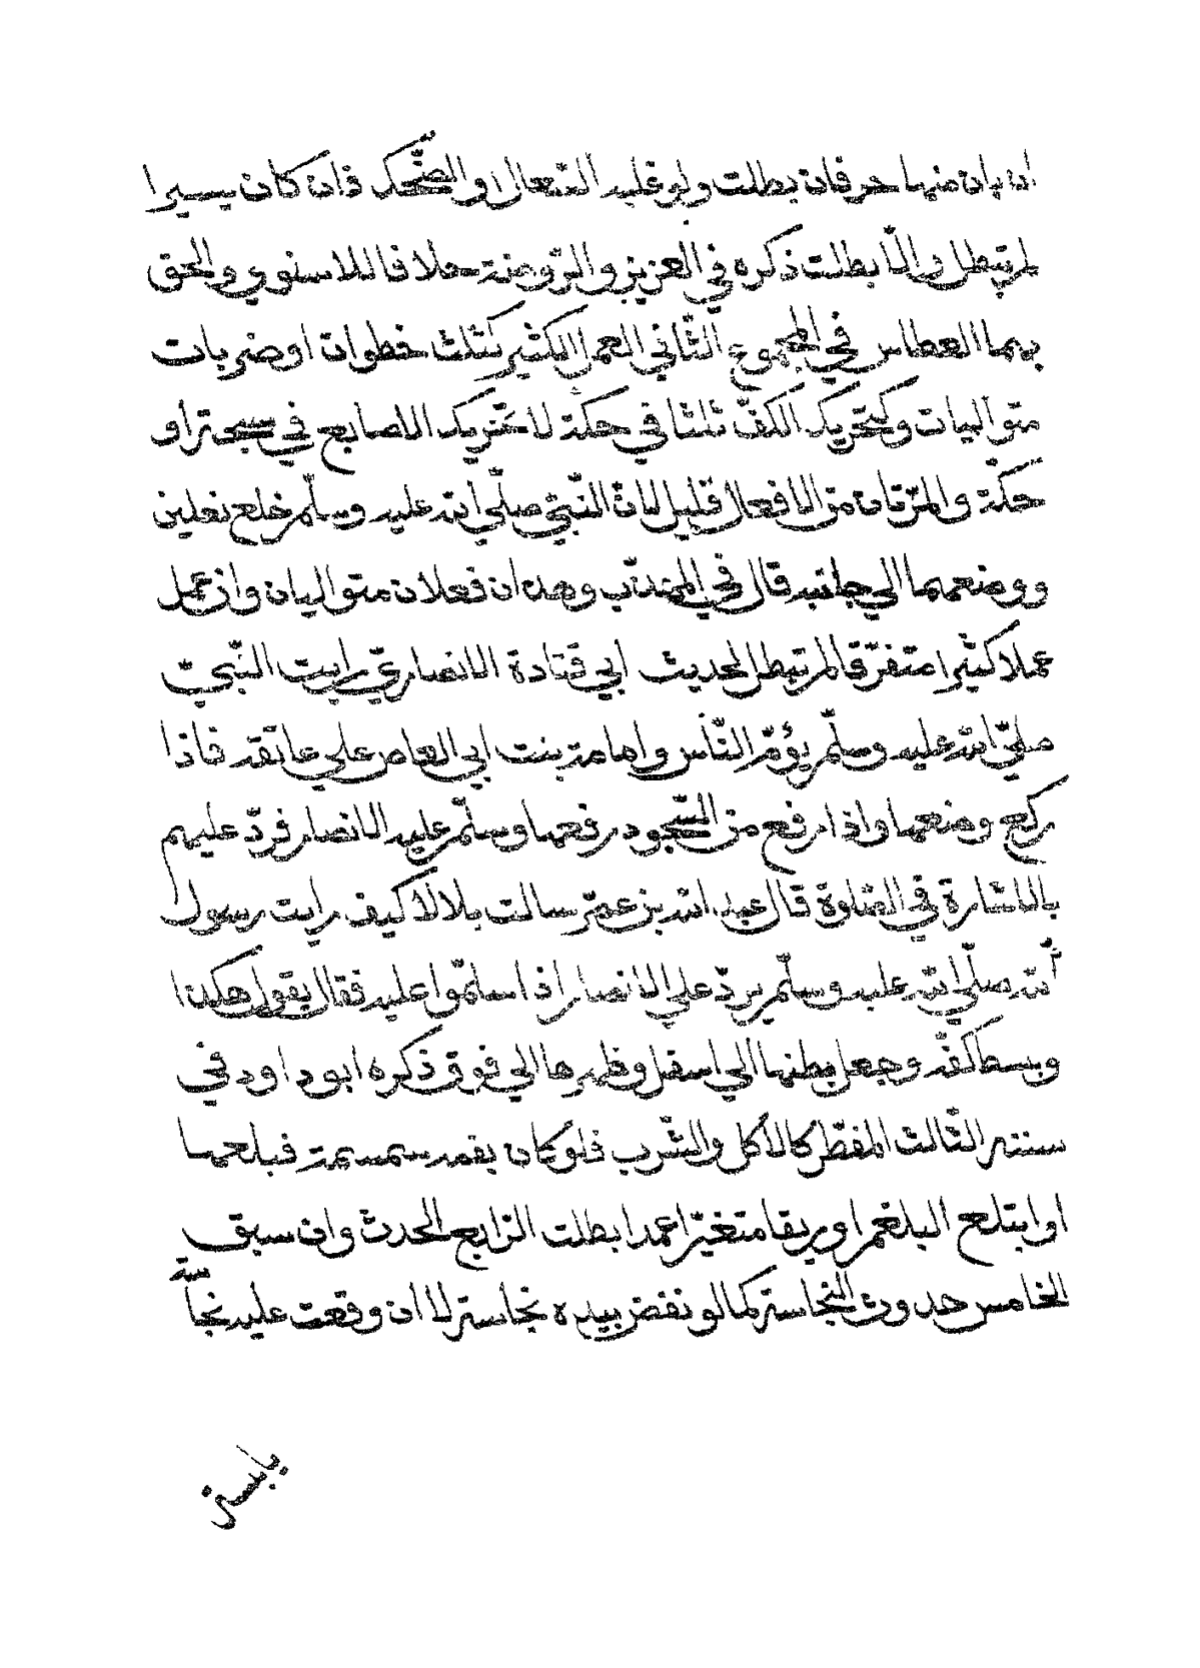 ان بان منها حرفان بطلت ولو غلبه السعال والضّحك فان كان يسيرا
لم تبطل والّا بطلت ذكره في العزيز والرّوضة خلافا للاسنوي والحق
بهما العطاس في المجموع الثّاني العمل الكثير كثلث خطوات او ضربات
متواليات وكتحريك الكفّ ثلثا في حكّة لا تحريك الاصابع في سبحة او
حكّة والمرّتان من الافعال قليل لانّ النّبيّ صلّي الله عليه وسلّم خلع نعلين
ووضعهما الي جانبه قال في المهذّب وهذان فعلان متواليان وان عمل
عملا كثيرا متفرّقا لم تبطل لحديث ابي قتادة الانصاريّ رايت النّبيّ
صلّي الله عليه وسلّم يؤمّ النّاس وامامة بنت ابي العاص علي عاتقه فاذا
ركع وضعها واذا رفع من السّجود رفعها وسلّم عليه الانصار فردّ عليهم
بالاشارة في الصّلوة قال عبد الله بن عمر سالت بلالا كيف رايت رسول
الله صلّي الله عليه وسلّم يردّ علي الانصار اذا سلّموا عليه فقال يقول هكذا
وبسط كفّه وجعل بطنها الي اسفل وظهرها الي فوق ذكره ابو داود في
سننه الثّالث المفطّر كالاكل والشّرب فلو كان بفمه سمسمة فبلعها
او ابتلع البلغم او ريقا متغيّرا عمدا بطلت الرّابع الحدث وان سبق
الخامس حدوث النّجاسة كما لو نفض بيده نجاسة لا ان وقعت عليه نجاسة
يابسة